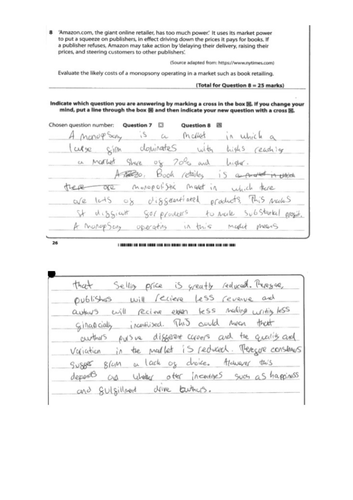 8 'Amazon.com, the giant online retailer, has too much power.' It uses its market power
to put a squeeze on publishers, in effect driving down the prices it pays for books. If
a publisher refuses, Amazon may take action by 'delaying their delivery, raising their
prices, and steering customers to other publishers'.
(Source adapted from: https://www.nytimes.com)
Evaluate the likely costs of a monopsony operating in a market such as book retailing.
(Total for Question 8 = 25 marks)
Indicate which question you are answering by marking a cross in the box ☒. If you change your
mind, put a line through the box and then indicate your new question with a cross ☒.
Chosen question number: Question 7 Question 8
A monopsony is a market in which a
large firm dominates with
a market share of 70% and higher.
Book retailing is
monopolistic market in which there
are lots of differentiated products This means
it difficult for producers to make substantial profit.
A monopsony operating in this market means
26
that selling price is greatly reduced. Therefore,
publishers will recieve less revenue and
authors will recieve less making writing less
financially incentivised. This could mean that
authors pursue different careers and the quality and
variation in the market is reduced. Therefore consumers
suffer from a lack of choice. However this
depends on whether other incentives such as happiness
and fulfillment drive authors.